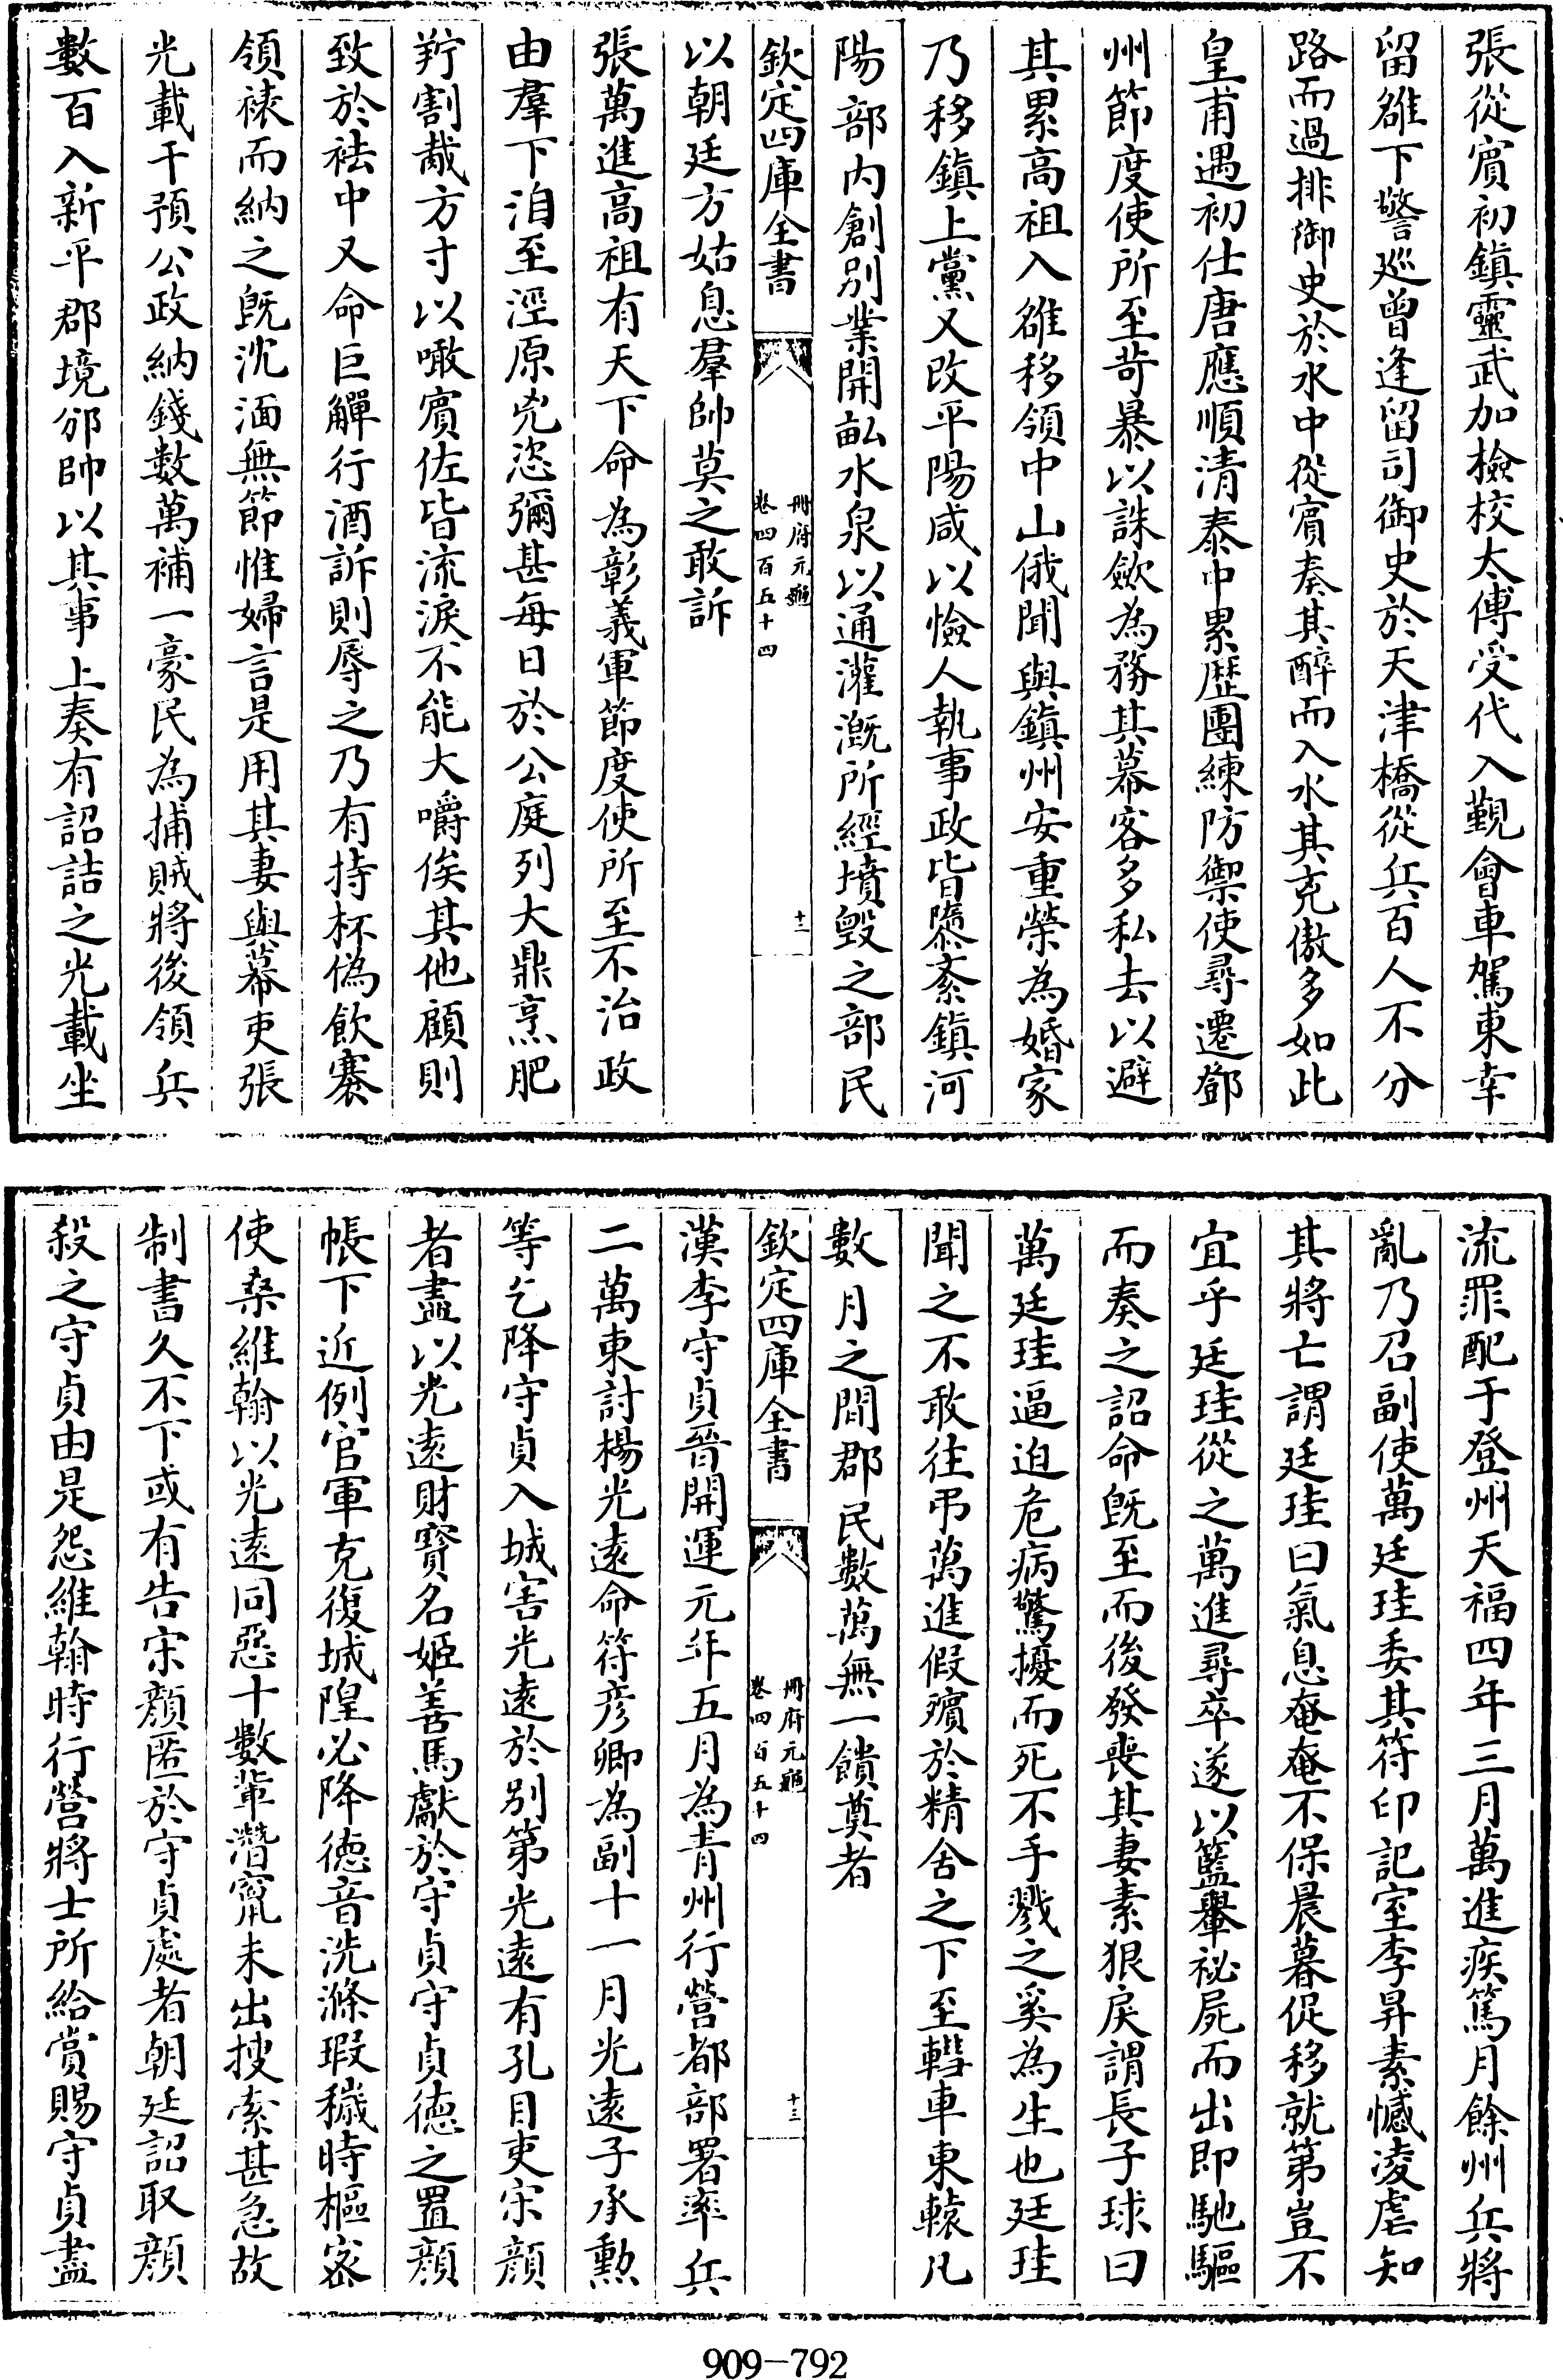 張從賔初鎮靈武加檢校太傅受代入覲會車駕東幸
留雒下警巡曾逢留司御史於天津橋從兵百人不分
路而過排御史於水中從賔奏其醉而入水其克傲多如此
皇甫遇初仕唐應順清泰中累歴團練防禦使尋遷鄧
州節度使所至苛暴以誅歛為務其幕客多私去以避
其累高祖入雒移領中山俄聞與鎮州安重榮為婚家
乃移鎮上黨又改平陽咸以憸人執事政皆隳紊鎮河
陽部内創別業開畝水泉以通灌漑所經墳毀之部民
欽定四庫全書
冊府元龜
卷四百五十四
十二
以朝廷方姑息羣帥莫之敢訴
張萬進高祖有天下命為彰義軍節度使所至不治政
由羣下洎至涇原兇恣彌甚每日於公庭列大鼎烹肥
羜割胾方寸以噉賔佐皆流淚不能大嚼俟其他顧則
致於袪中又命巨觶行酒訴則辱之乃有持杯偽飲褰
領裱而納之既沈湎無節惟婦言是用其妻與幕吏張
光載干預公政納錢數萬補一豪民為捕賊將後領兵
數百入新平郡境邠帥以其事上奏有詔詰之光載坐
流罪配于登州天福四年三月萬進疾篤月餘州兵將
亂乃召副使萬廷珪委其符印記室李昇素憾凌虐知
其將亡謂廷珪曰氣息奄奄不保晨暮促移就第豈不
宜乎廷珪從之萬進尋卒遂以籃轝祕屍而出即馳驅
而奏之詔命既至而後發喪其妻素狠戾謂長子球曰
萬廷珪逼迫危病驚擾而死不手戮之奚為生也廷珪
聞之不敢往弔萬進假殯於精舍之下至轊車東轅凡
數月之間郡民數萬無一饋奠者
欽定四庫全書
冊府元龜
卷四百五十四
十三
漢李守貞晉開運元年五月為青州行營都部署率兵
二萬東討楊光遠命符彦卿為副十一月光遠子承勳
等乞降守貞入城害光遠於別第光遠有孔目吏宋顔
者盡以光遠財寳名姬善馬獻於守貞守貞徳之置顔
帳下近例官軍克復城隍必降徳音洗滌瑕穢時樞密
使桑維翰以光遠同惡十數輩潛竄未出搜索甚急故
制書久不下或有告宋顔匿於守貞處者朝廷詔取顔
殺之守貞由是怨維翰時行營將士所給賞賜守貞盡
909-792